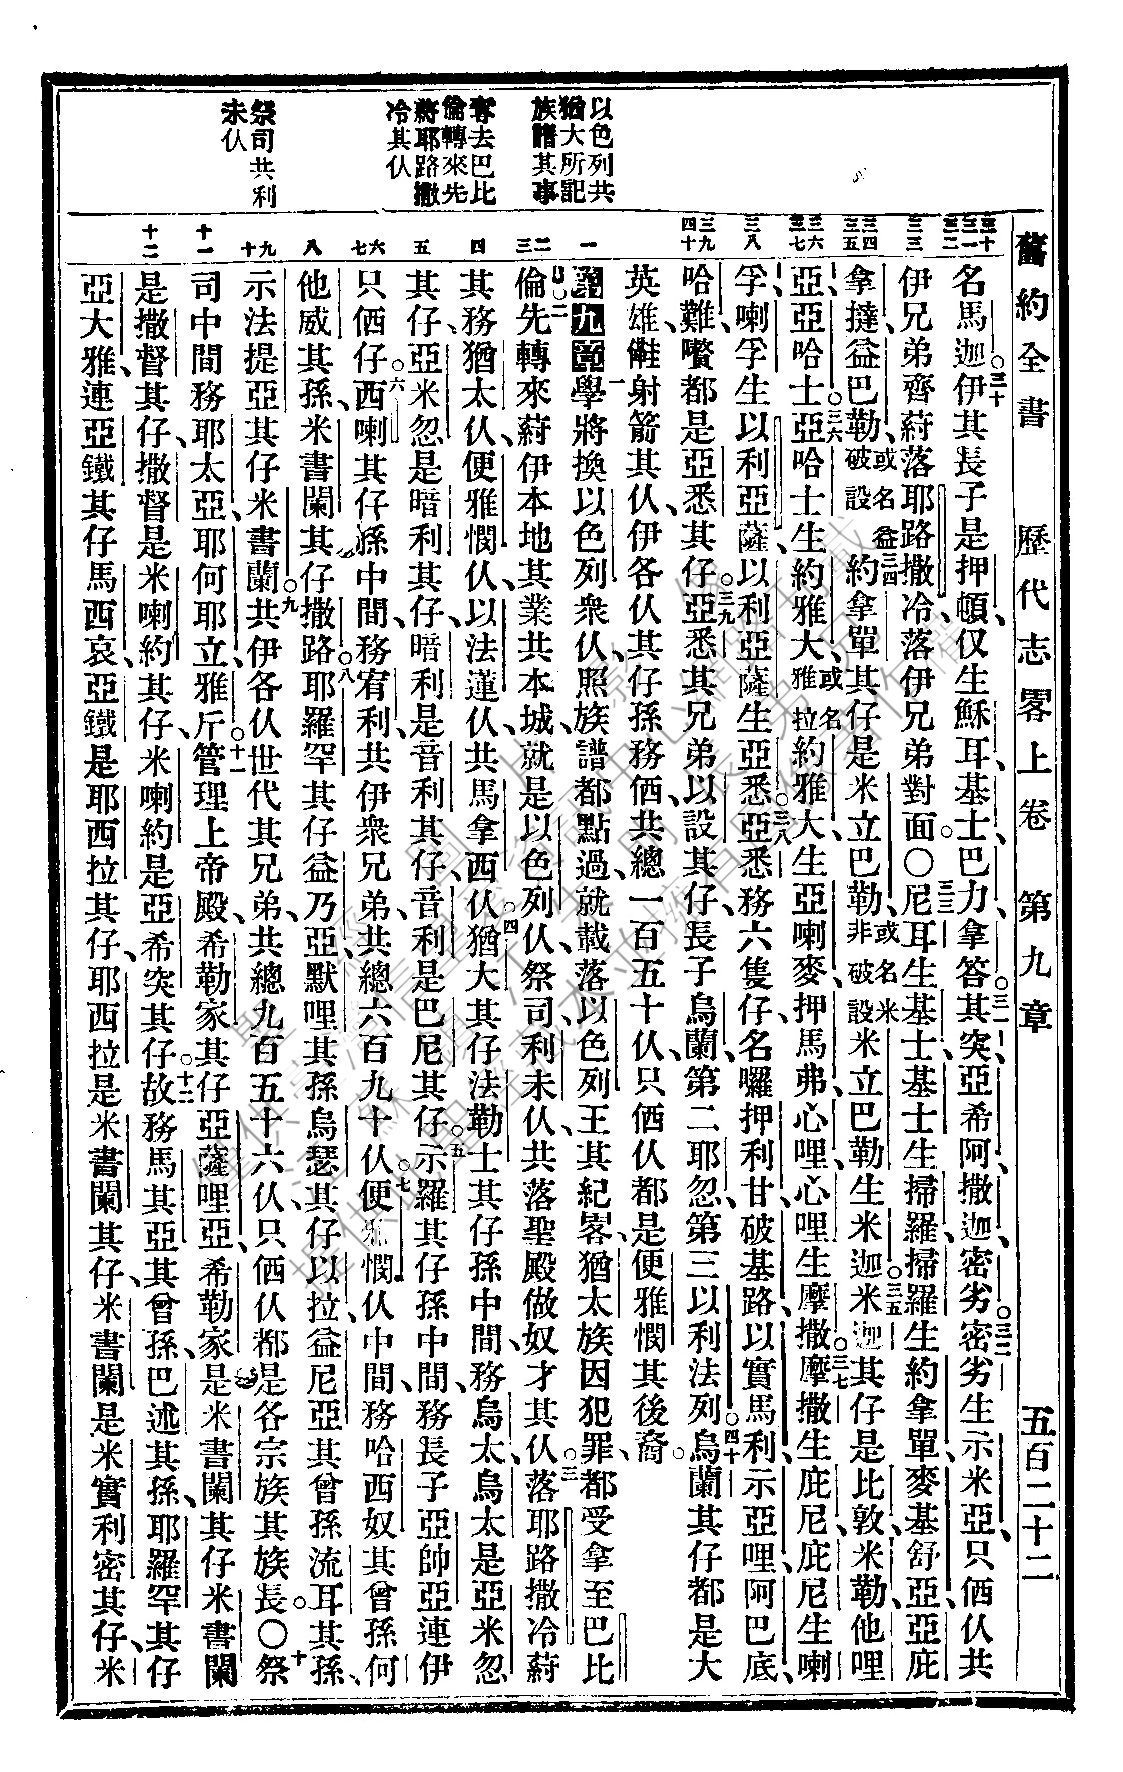 舊約全書　歷代志畧上卷　第九章　五百二十二
以色列共
猶大所記
族譜其事
奪去巴比
倫轉來先
蒞耶路撒
冷其仈
祭司共利
未仈
名馬迦伊其長子是押頓仅生穌耳基士巴力拿答其突亞希阿撒迦密劣密劣生示米亞只僫仈共
伊兄弟齊蒞落耶路撒冷落伊兄弟對面〇尼耳生基士基士生掃羅掃羅生約拿單麥基舒亞亞庇
拿撻益巴勒或名益破設約拿單其仔是米立巴勒或名米非破設米立巴勒生米迦米迦其仔是比敦米勒他哩
亞亞哈士亞哈士生約雅大或名雅拉約雅大生亞喇麥押馬弗心哩心哩生摩撒摩撒生庇尼庇尼生喇
孚喇孚生以利亞薩以利亞薩生亞悉亞悉務六隻仔名囉押利甘破基路以實馬利示亞哩阿巴底
哈難嚽都是亞悉其仔亞悉其兄弟以設其仔長子烏蘭第二耶忽第三以利法列烏蘭其仔都是大
英雄射箭其仈伊各仈其仔孫務僫共總一百五十仈只僫仈都是便雅憫其後裔
第九章一學將換以色列衆仈照族譜都點過就載落以色列王其紀畧猶太族因犯罪都受拿至巴比
倫先轉來蒞伊本地其業共本城就是以色列仈祭司利未仈共落聖殿做奴才其仈落耶路撒冷蒞
其務猶太仈便雅憫仈以法蓮仈共馬拿西仈猶大其仔法勒士其仔孫中間務烏太烏太是亞米忽
其仔亞米忽是暗利其仔暗利是音利其仔音利是巴尼其仔示羅其仔孫中間務長子亞帥亞連伊
只僫仔西喇其仔孫中間務宥利共伊衆兄弟共總六百九十仈便雅憫仈中間務哈西奴其曾孫何
他威其孫米書闌其仔撒路耶羅罕其仔益乃亞默哩其孫烏瑟其仔以拉益尼亞其曾孫流耳其孫
示法提亞其仔米書蘭共伊各仈世代其兄弟共總九百五十六仈只僫仈都是各宗族其族長〇祭
司中間務耶太亞耶何耶立雅斤管理上帝殿希勒家其仔亞薩哩亞希勒家是米書闌其仔米書闌
是撒督其仔撒督是米喇約其仔米喇約是亞希突其仔故務馬其亞其曾孫巴述其孫耶羅罕其仔
亞大雅連亞鐵其仔馬西哀亞鐵是耶西拉其仔耶西拉是米書闌其仔米書闌是米實利密其仔米